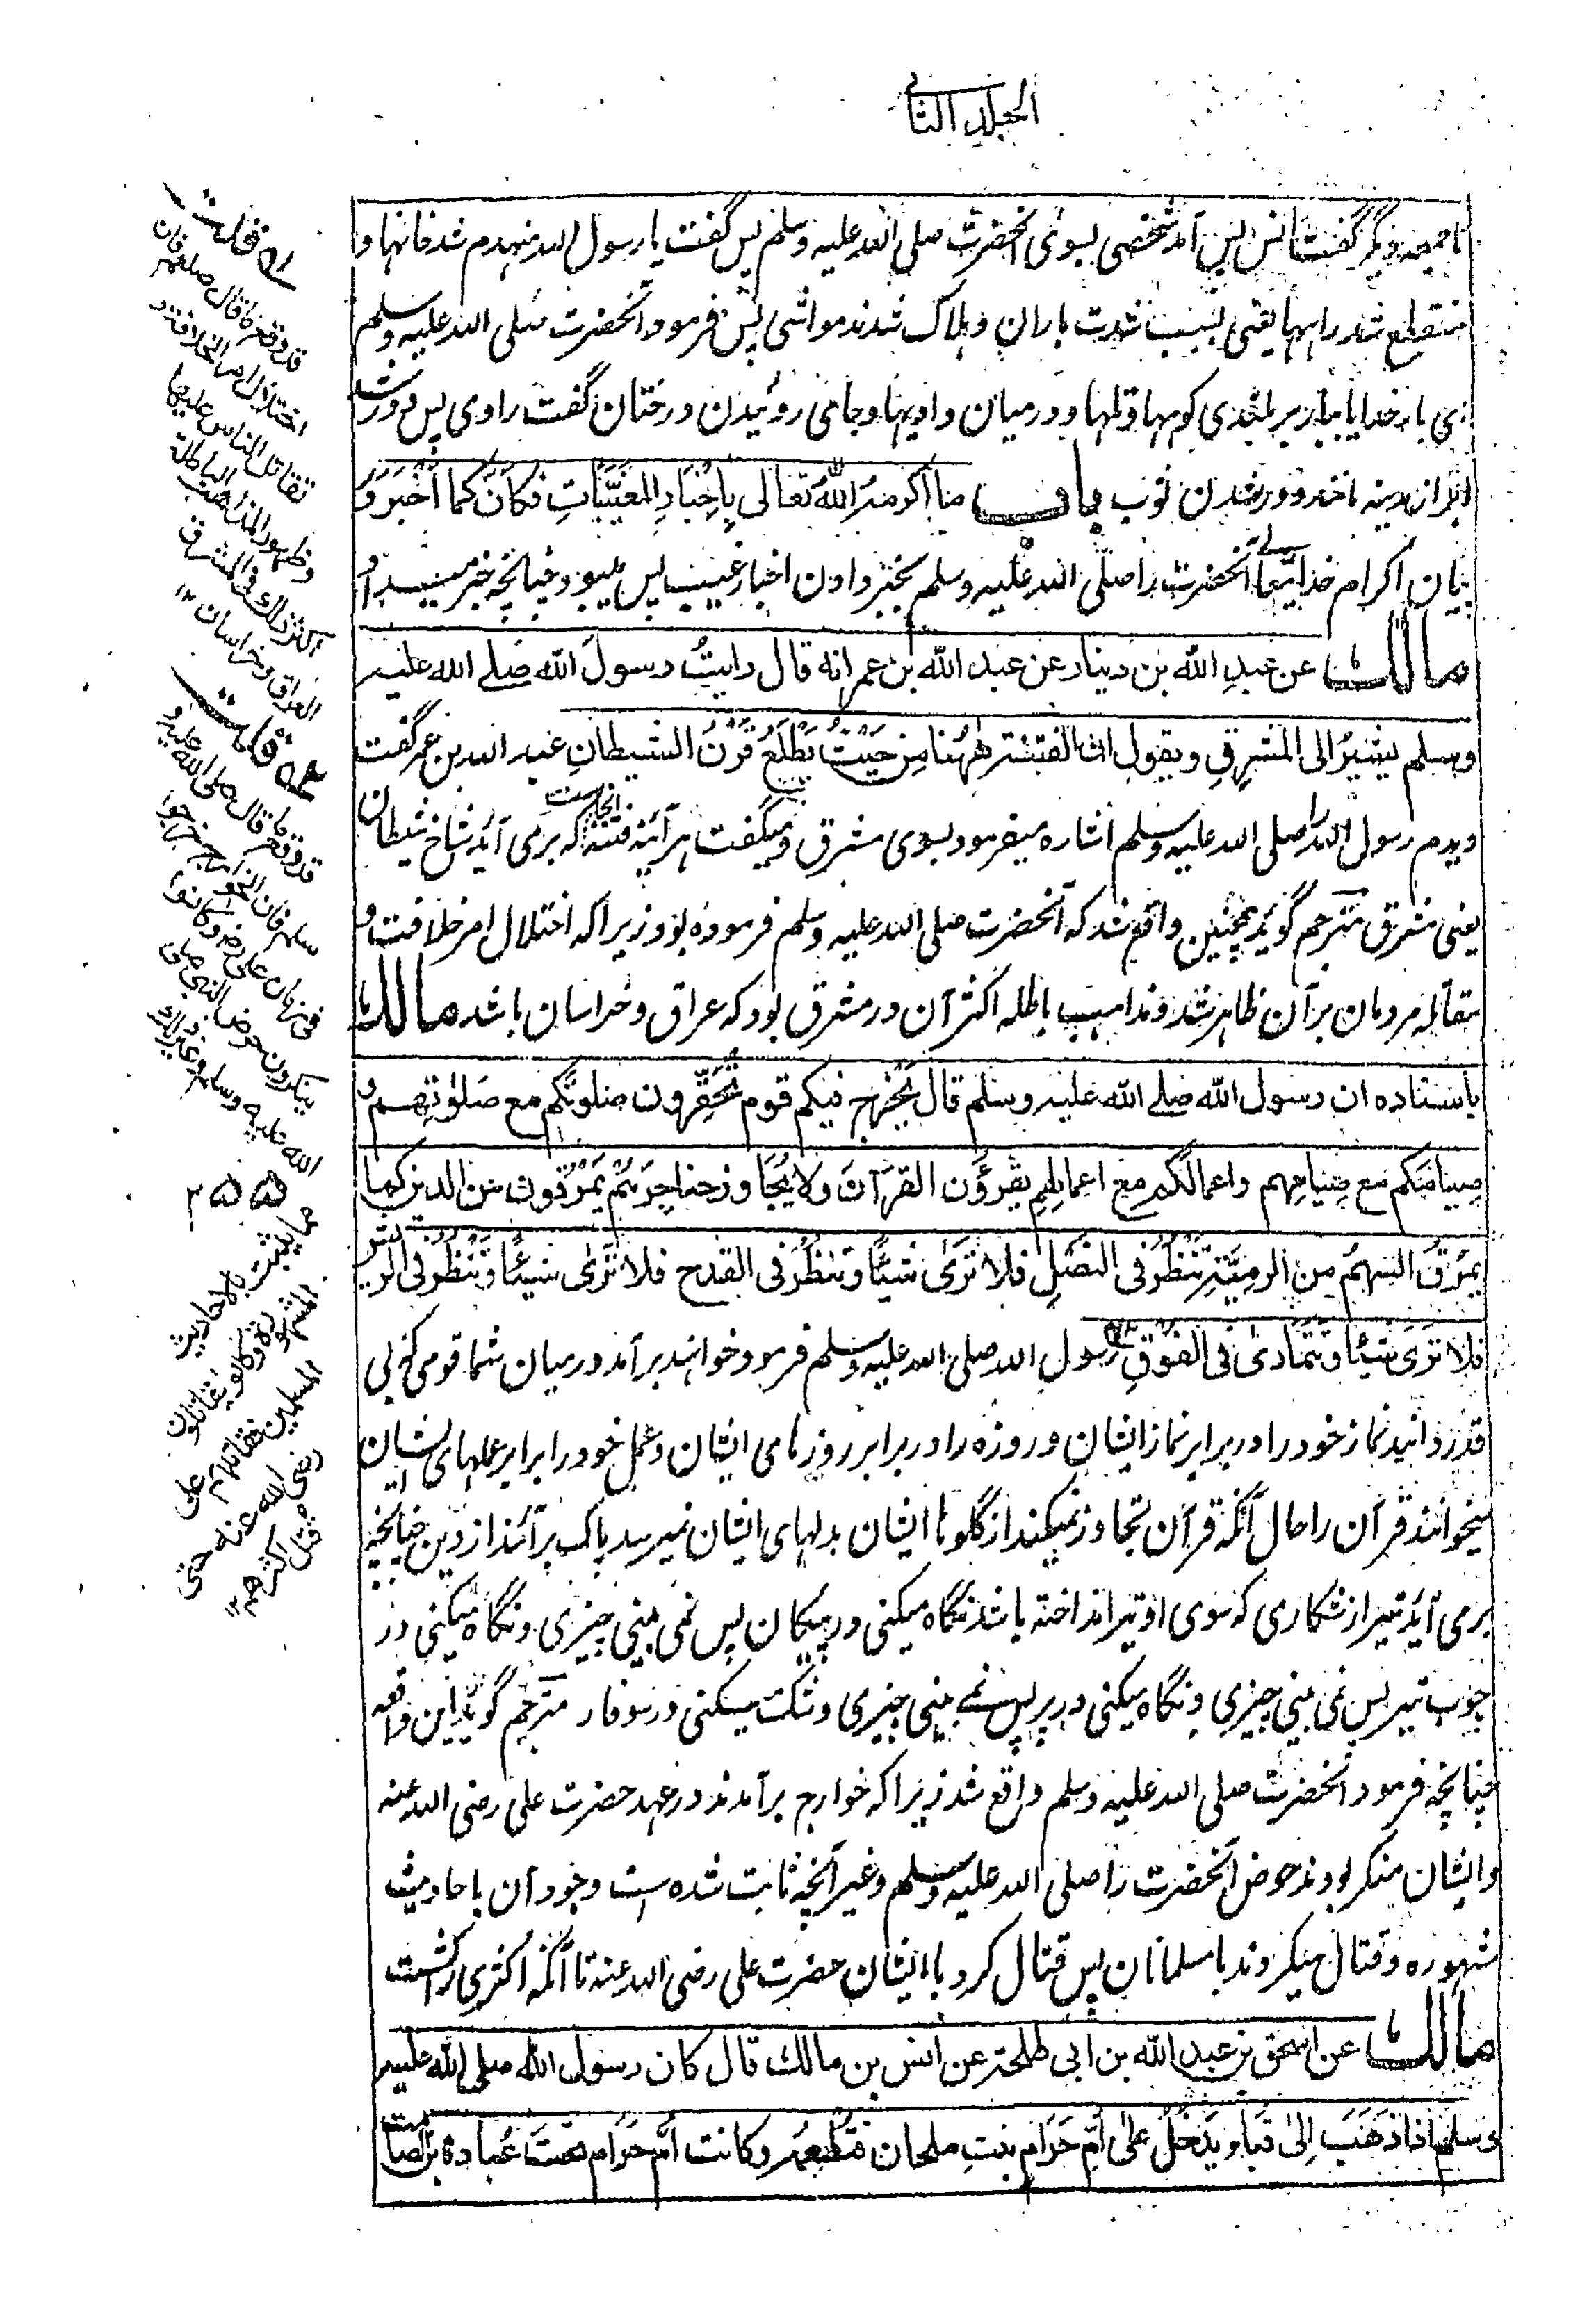 الجلد الثانی
تا جمعه دیگر گفت انس پس آمد شخصی بسوی آنحضرت صلی الله علیه وسلم پس گفت یا رسول الله منهدم شد خانها و
منقطع شد راهها یعنی بسبب شدت باران و هلاک شدند مواشی پس فرمود آنحضرت صلی الله علیه وسلم
ای بار خدایا ببار بر بلندی کوهها و تلها و درمیان وادیها و جاهای روئیدن درختان گفت راوی پس دور شد
ابر از مدینه مانند دور شدن ثوب باب ما اکرمه الله تعالی باخبار المغیبات فکان کما اخبر و
بیان اکرام خدایتعالی آنحضرت را صلی الله علیه وسلم بخبر دادن اخبار غیب پس میبود چنانچه خبر میداد
مالك عن عبد الله بن دینار عن عبد الله بن عمر انه قال رایت رسول الله صلے الله علیه
وسلم یشیر الی المشرق ویقول ان الفتنة ههنا من حیث یطلع قرن الشیطان عبد الله بن عمر گفت
دیدم رسول الله را صلی الله علیه وسلم اشاره میفرمود بسوی مشرق و میگفت هر آئینه فتنه اینجاست که برمی آید شاخ شیطان
یعنی مشرق مترجم گوید همچنین واقع شد که آنحضرت صلی الله علیه وسلم فرموده بود زیرا که اختلال امر خلافت و
مقاتله مردمان بر آن ظاهر شد و مذاهب باطله اکثر آن در مشرق بود که عراق و خراسان باشد مالك
باسناده ان رسول الله صلے الله علیه وسلم قال یخرج فیکم قوم تحقرون صلوتکم مع صلوتهم و
صیامکم مع صیامهم واعمالکم مع اعمالهم یقرؤن القرآن ولا یجاوز حناجرهم یمرقون من الدین کما
یمرق السهم من الرمیة تنظر فی النصل فلا تری شیئًا وتنظر فی القدح فلا تری شیئًا وتنظر فی الریش
فلا تری شیئا وتتمادی فی الفوق رسول الله صلی الله علیه وسلم فرمود خواهند برآمد درمیان شما قومی که بی
قدر دانید نماز خود را در برابر نماز ایشان و روزه را در برابر روزهای ایشان و عمل خود را برابر عملهای ایشان
میخوانند قرآن را حال آنکه قرآن تجاوز نمیکند از گلوها ایشان بدلهای ایشان نمیرسد پاک برآیند از دین چنانچه
برمی آید تیر از شکاری که سوی او تیر انداخته باشد نگاه میکنی در پیکان پس نمی بینی چیزی و نگاه میکنی در
چوب تیر پس نمی بینی چیزی و نگاه میکنی در پر پس نمے بینی چیزی و شک میکنی در سوفار مترجم گوید این واقعه
چنانچه فرمود آنحضرت صلی الله علیه وسلم واقع شد زیرا که خوارج برآمدند در عهد حضرت علی رضی الله عنه
و ایشان منکر بودند حوض آنحضرت را صلی الله علیه وسلم و غیر آنچه ثابت شده ست وجود آن باحادیث
مشهوره و قتال میکردند با مسلمانان پس قتال کرد با ایشان حضرت علی رضی الله عنه تا آنکه اکثری را کشت
مالك عن اسحق بن عبد الله بن ابی طلحة عن انس بن مالك قال کان رسول الله صلی الله علیه
وسلم اذا ذهب الی قبا یدخل علی ام حرام بنت ملحان فتطعمه وکانت ام حرام تحت عبادة بن الصامت
قلت
قد وقع کما قال صلعم فان
اختلال امر الخلافة و
تقاتل الناس علیها
وظهور المذاهب الباطلة
اکثر ذلك فی المشرق
العراق وخراسان ١٢
قلت
قد وقع کما قال صلی الله علیه و
سلم فان الخوارج خرجوا
فی زمان علی رضه وکانوا
ینکرون حوض النبی صلی
الله علیه وسلم وغیر ذلك
مما یثبت بالاحادیث
المشهورة وکانوا یقاتلون
المسلمین فقاتلهم علی
رضی الله عنه حتی
قتل اکثرهم ١٢